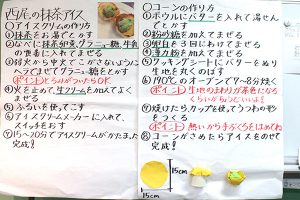 西尾の抹茶アイス
○アイスクリームの作り方
①抹茶をお湯でとかす
②なべに抹茶、卵黄、グラニュー糖、牛乳の
順番に入れてまぜる
③弱火から中火でこがさないように
ヘラでまぜてグラニュー糖をとかす
ポイント とろりがつけばOK
④火を止めて、生クリームを加えてよく
まぜる
⑤ふるいを使ってこす
⑥アイスクリームメーカーに入れて、
スイッチをおす
⑦15~20分でアイスクリームがかたまったら
完成!
○コーンの作り方
①ボウルにバターを入れて湯せん
でとかす
②粉砂糖を加えてまぜる
③卵白を3回にわけてまぜる
④薄力粉を加えてまぜる
⑤クッキングシートにバターをぬり
生地を丸くのばす
⑥170℃のオーブンで7~8分焼く
ポイント 生地のまわりが茶色になる
くらいがちょうどいいよ!
⑦焼けたら、カップを使ってうつわのかたち
をつくる
ポイント 熱いから手ぶくろをはめてね
⑧コーンがさめたらアイスをのせて
完成!
15cm
15cm